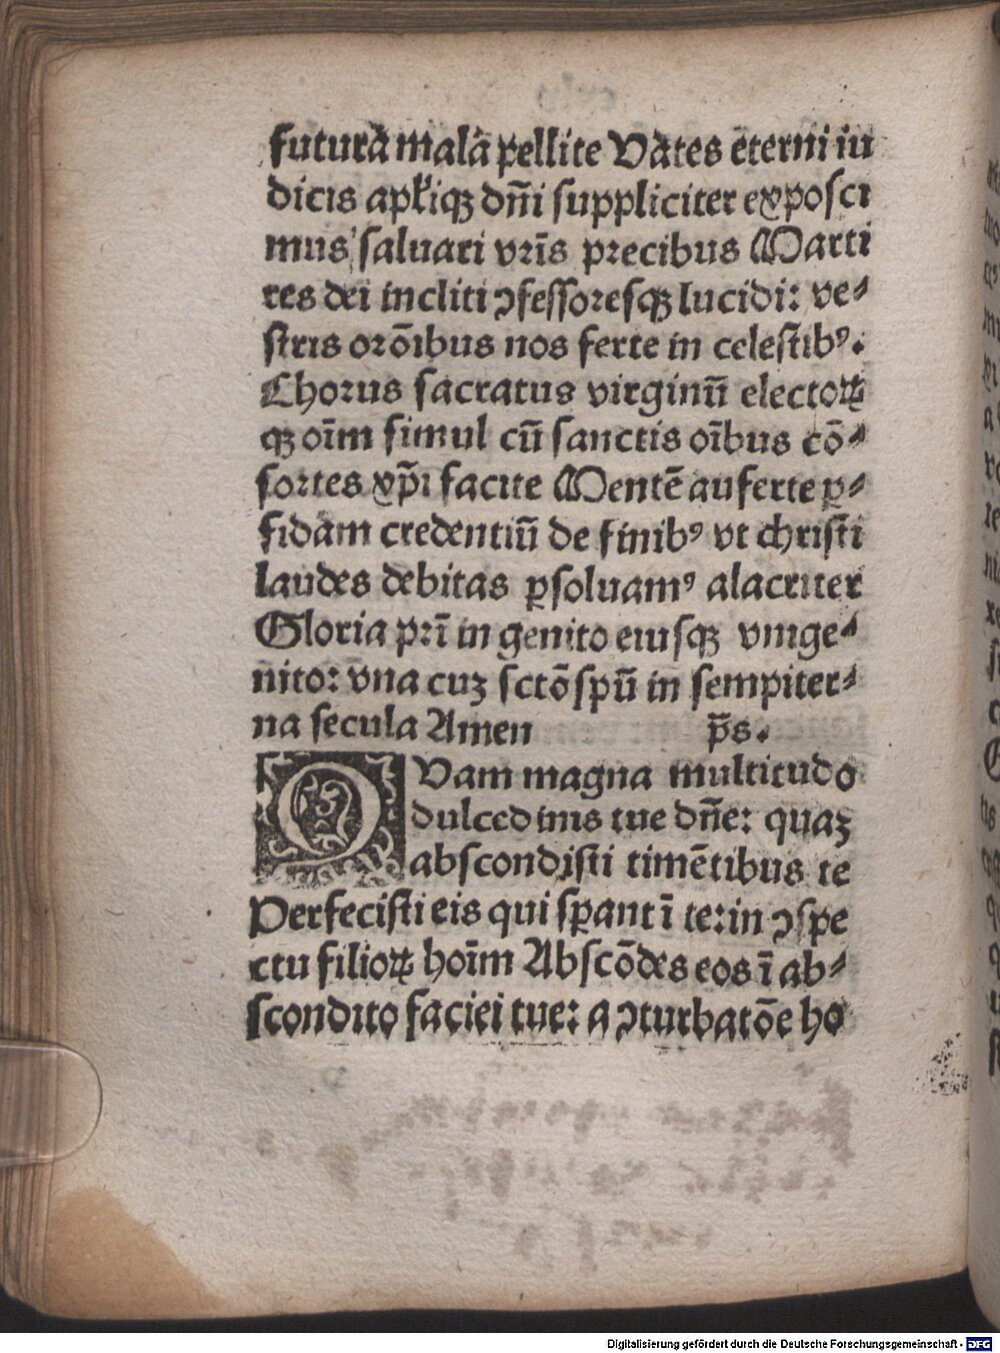 futura mala pellite Vates eterni iu
dicis apl'iqꝫ dn̄i suppliciter exposci
mus saluari vr̄is precibus Marti
res dei incliti ꝯfessoresqꝫ lucidi: ve⸗
stris orōibus nos ferte in celestibꝰ.
Chorus sacratus virginū electoꝝ
qꝫ oīm simul cū sanctis oībus cō⸗
sortes xp̄i facite Mentē auferte ꝑ⸗
fidam credentiū de finibꝰ vt christi
laudes debitas ꝑsoluamꝰ alacriter
Gloria pr̄i in genito eiusqꝫ vnige⸗
nito: vna cuꝫ sctō spū in sempiter⸗
na secula Amen p̄s.
QVam magna multitudo
dulcedinis tue dn̄e: quaꝫ
abscondisti timētibus te
Perfecisti eis qui sꝑant ī te: in ꝯspe
ctu filioꝝ hoīm Abscōdes eos ī ab⸗
scondito faciei tue: a ꝯturbatōe ho
Digitalisierung gefördert durch die Deutsche Forschungsgemeinschaft - DFG